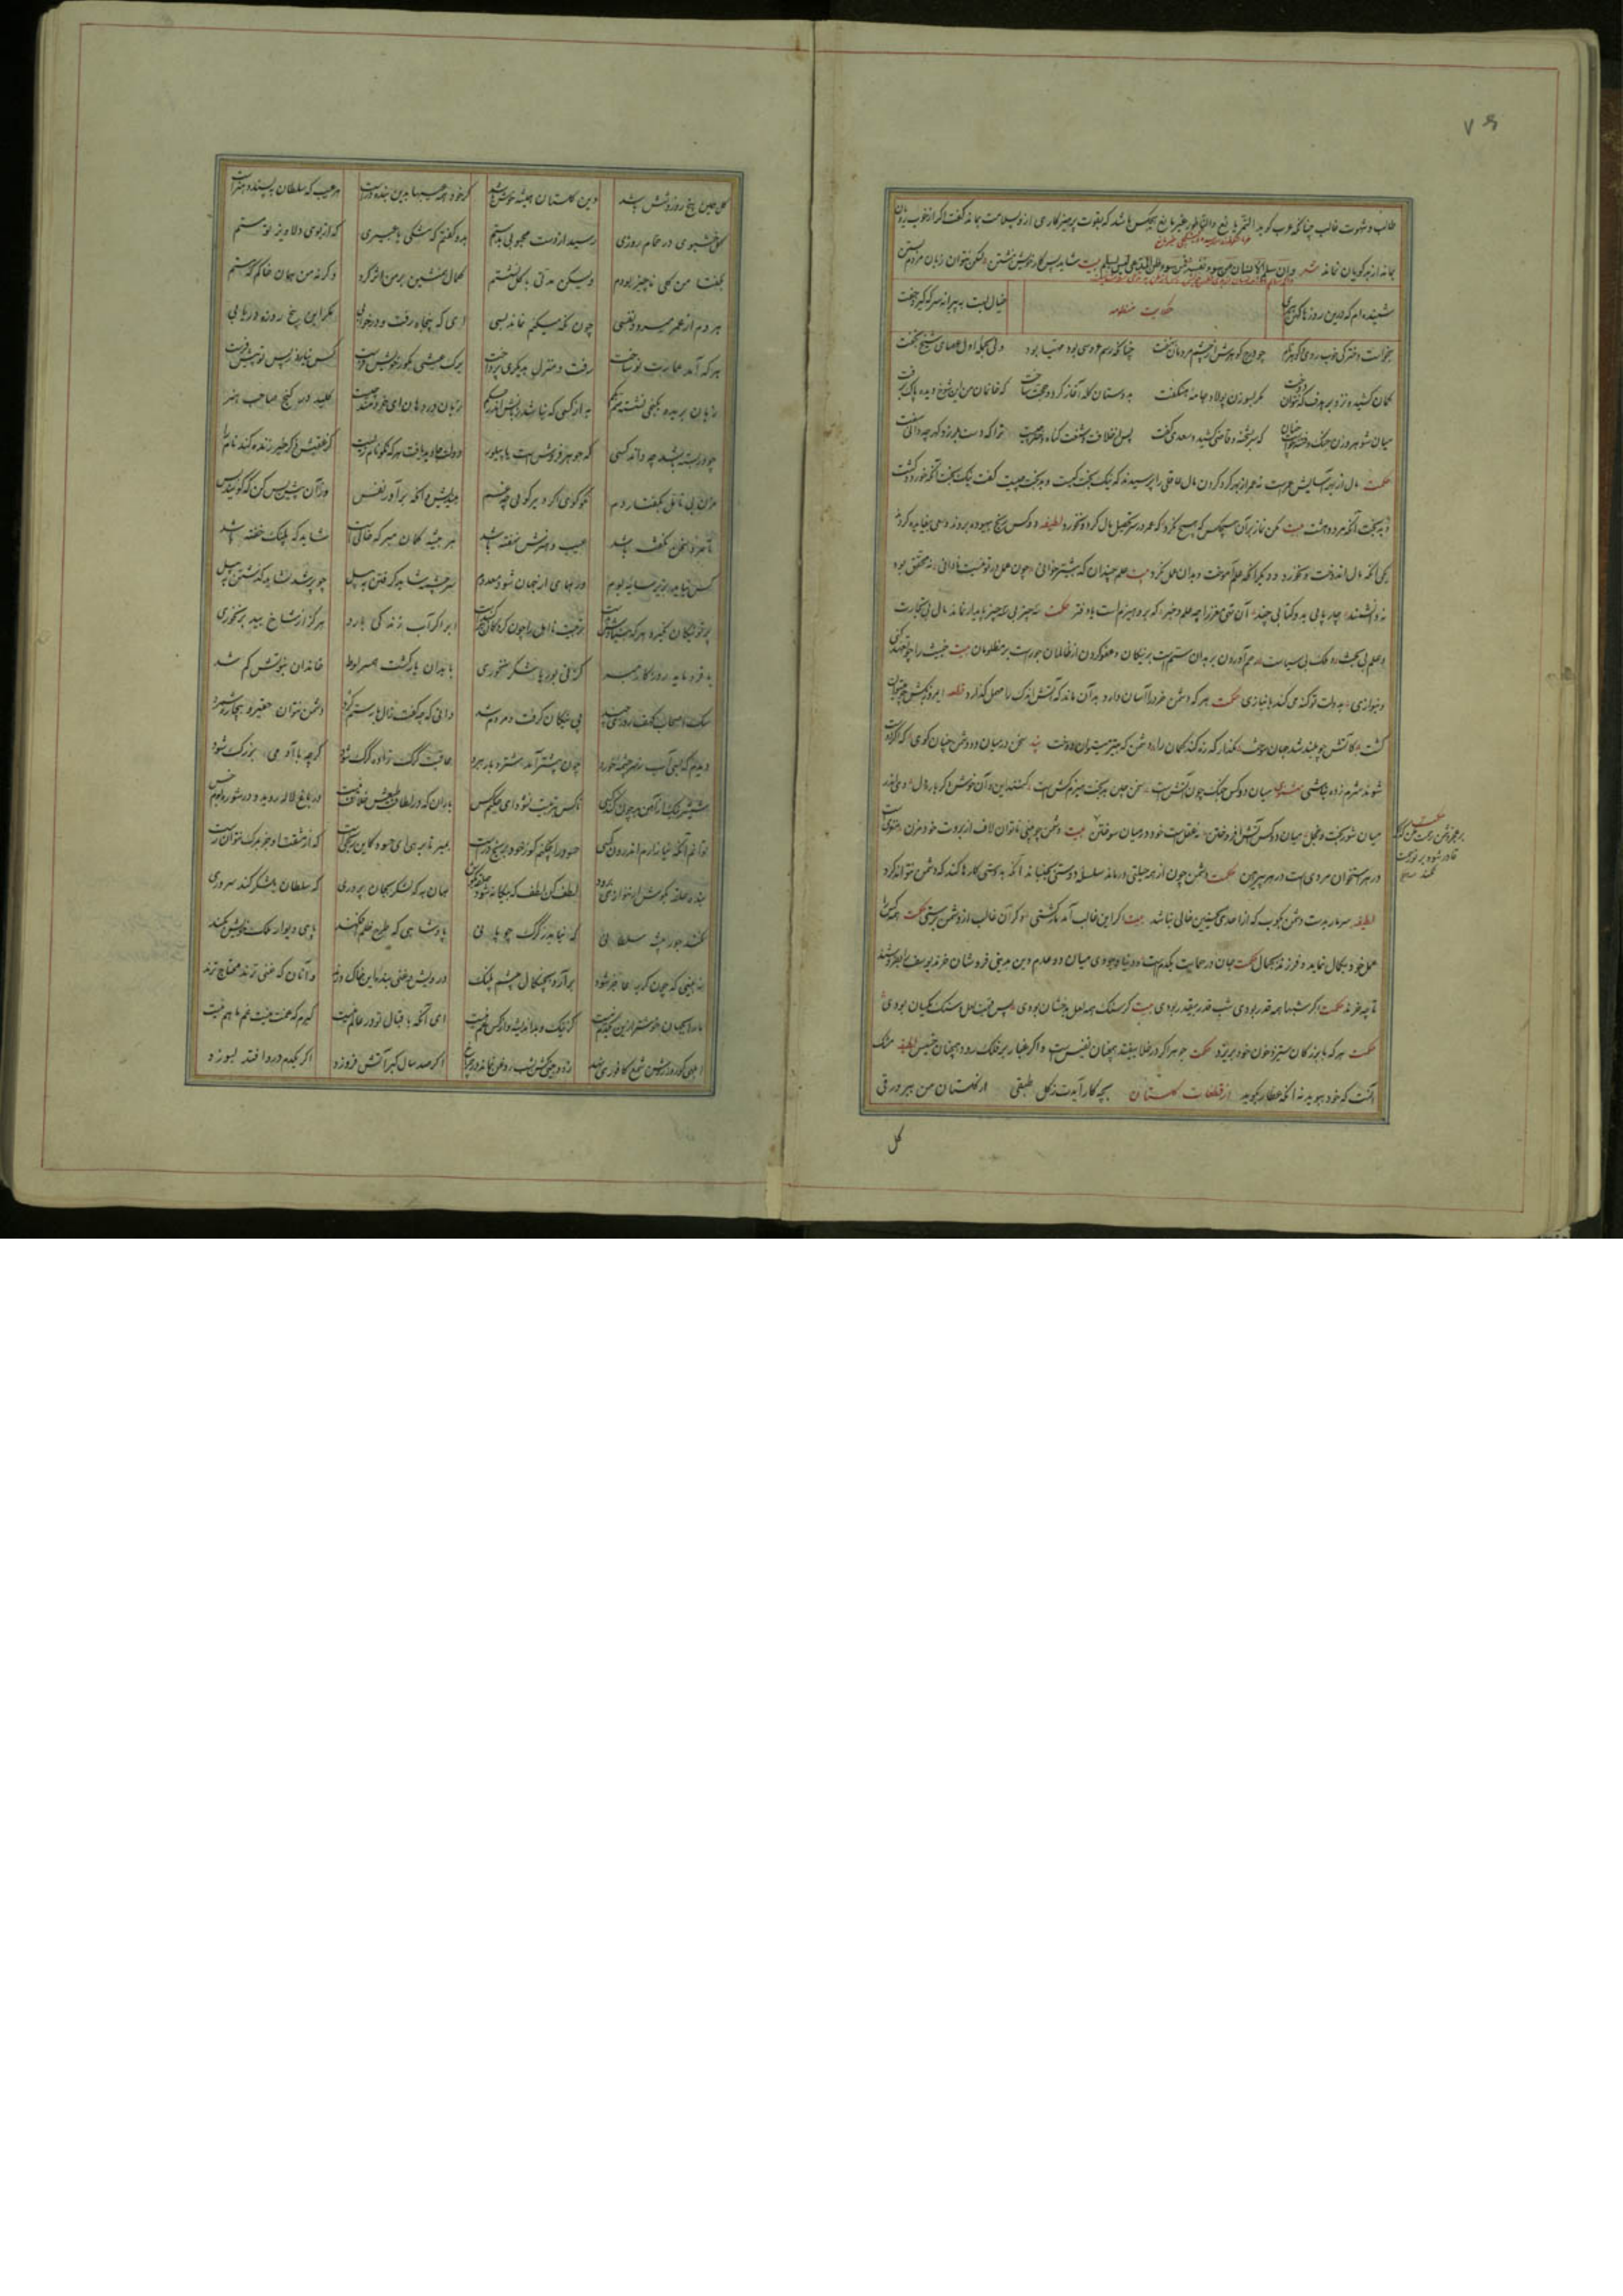 ۷۶
طالب و شهوت غالب چنانکه عرب گوید التمر یانع والناطور غیر مانع هیچکس باشد که بقوت پرهیزکاری ازو بسلامت بماند گفت اگر از خوب رویان
بماند از بدگویان نماند شعر وان سلم الانسان من سوء نفسه فمن سوء ظن المدعی لیس یسلم بیت شاید پس کار خویشتن نشستن لیکن نتوان زبان مردم بستن
شنیده‌ام که درین روزها کهن پیری
حکایت منظومه
خیال بست به پیرانه سر که گیرد جفت
بخواست دخترکی خوب روی گوهر نام چو درج گوهرش از چشم مردمان بنهفت چنانکه رسم عروسی بود مهیا بود ولی بحمله اول عصای شیخ بخفت
کمان کشید و نزد بر هدف که نتوان دوخت مگر بسوزن پولاد جامه هنگفت بدوستان گله آغاز کرد و حجت ساخت که خانمان من این شوخ دیده پاک برفت
میان شوهر و زن جنگ و فتنه خاست چنان که سر بشحنه و قاضی کشید و سعدی گفت پس از خلافت و شنعت گناه دختر نیست ترا که دست بلرزد گهر چه دانی سفت
حکمت مال از بهر آسایش عمرست نه عمر از بهر گرد کردن مال عاقلی را پرسیدند که نیک بخت کیست و بدبخت چیست گفت نیک بخت آنکه خورد و کشت
و بدبخت آنکه مرد و هشت بیت مکن نماز بران هیچکس که هیچ نکرد که عمر در سر تحصیل مال کرد و نخورد لطیفه دو کس رنج بیهوده بردند و سعی بیفایده کردند
یکی آنکه مال اندوخت و نخورد و دیگر آنکه علم آموخت و بدان عمل نکرد بیت علم چندان که بیشتر خوانی چون عمل در تو نیست نادانی نه محقق بود
نه دانشمند چارپایی برو کتابی چند آن تهی مغز را چه علم و خبر که برو هیزم است یا دفتر حکمت سه چیز بی سه چیز پایدار نماند مال بی تجارت
و علم بی بحث و ملک بی سیاست رحم آوردن بر بدان ستم است بر نیکان و عفو کردن از ظالمان جورست بر مظلومان بیت خبیث را چو تعهد کنی
و بنوازی بدولت تو گنه می کند بانبازی حکمت هر که دشمن خرد را آسان دارد بدان ماند که آتش اندک را مهمل گذارد قطعه امروز بکش چو میتوان
کشت کاتش چو بلند شد جهان سوخت مگذار که زه کند کمان را دشمن که به تیر میتوان دوخت پند سخن در میان دو دشمن چنان گوی که اگر دوست
شوند شرم زده نباشی مثنوی میان دو کس جنگ چون آتش است سخن چین بدبخت هیزم کش است کنند این و آن خوش دگر باره دل وی اندر
میان شوربخت و خجل میان دو کس آتش افروختن نه عقل است خود در میان سوختن بیت دشمن چو بینی ناتوان لاف از بروت خود مزن مغزیست
در هر استخوان مردی است در هر پیرهن حکمت دشمن چون از همه حیلتی درماند سلسله دوستی بجنباند آنگه بدوستی کارها کند که دشمن نتواند کرد
لطیفه سر مار بدست دشمن بکوب که از احدی الحسنیین خالی نباشد بیت اگر این غالب آمد مار کشتی وگر آن غالب از دشمن برستی حکمت همه کس را
عقل خود بکمال نماید و فرزند بجمال حکمت جان در حمایت یکدم است و دنیا وجودی میان دو عدم دین بدنیی فروشان خرند یوسف را بفروشند
تا چه خرند حکمت اگر شبها همه قدر بودی شب قدر بیقدر بودی بیت گر سنگ همه لعل بدخشان بودی پس قیمت لعل و سنگ یکسان بودی
حکمت هر که با بزرگان ستیزد خون خود بریزد حکمت جوهر اگر در خلاب افتد همچنان نفیس است و اگر غبار بر فلک رود همچنان خسیس لطیفه مشک
آنست که خود ببوید نه آنکه عطار بگوید از قطعات گلستان بچه کار آیدت ز گل طبقی از گلستان من ببر ورقی
گل
حکمت بر عجز دشمن رحمت مکن که اگر
قادر شود بر تو رحمت
نکند
گل همین پنج روز و شش باشد وین گلستان همیشه خوش باشد گر خود همه عیبها بدین بنده درست هر عیب که سلطان بپسندد هنرست
گلی خوشبوی در حمام روزی رسید از دست محبوبی بدستم بدو گفتم که مشکی یا عبیری که از بوی دلاویز تو مستم
بگفتا من گلی ناچیز بودم ولیکن مدتی با گل نشستم کمال همنشین بر من اثر کرد وگرنه من همان خاکم که هستم
هر دم از عمر میرود نفسی چون نگه میکنم نماند بسی ای که پنجاه رفت و در خوابی مگر این پنج روزه دریابی
هر که آمد عمارت نو ساخت رفت و منزل بدیگری پرداخت برگ عیشی بگور خویش فرست کس نیارد ز پس تو پیش فرست
زبان بریده بکنجی نشسته صم بکم به از کسی که نباشد زبانش اندر حکم زبان در دهان ای خردمند چیست کلید در گنج صاحب هنر
چو در بسته باشد چه داند کسی که جوهر فروش است یا پیله‌ور دولت جاوید یافت هر که نکونام زیست کز عقبش ذکر خیر زنده کند نام را
مزن بی تامل بگفتار دم نکو گوی اگر دیر گویی چه غم بیندیش و آنگه برآور نفس وزان پیش بس کن که گویند بس
تا مرد سخن نگفته باشد عیب و هنرش نهفته باشد هر بیشه گمان مبر که خالیست شاید که پلنگ خفته باشد
کس نیاید بزیر سایه بوم ور همای از جهان شود معدوم سر چشمه شاید گرفتن به بیل چو پر شد نشاید گذشتن به پیل
پرتو نیکان نگیرد هر که بنیادش بدست تربیت نااهل را چون گردکان بر گنبدست ابر اگر آب زندگی بارد هرگز از شاخ بید بر نخوری
با فرومایه روزگار مبر کز نی بوریا شکر نخوری با بدان یار گشت همسر لوط خاندان نبوتش گم شد
سگ اصحاب کهف روزی چند پی نیکان گرفت و مردم شد دانی که چه گفت زال با رستم گرد دشمن نتوان حقیر و بیچاره شمرد
دیدیم که بسی آب ز سرچشمه خرد چون بیشتر آمد شتر و بار ببرد عاقبت گرگ زاده گرگ شود گرچه با آدمی بزرگ شود
شمشیر نیک ز آهن بد چون کند کسی ناکس بتربیت نشود ای حکیم کس باران که در لطافت طبعش خلاف نیست در باغ لاله روید و در شوره بوم خس
توانم آنکه نیازارم اندرون کسی حسود را چکنم کو ز خود برنج درست بمیر تا برهی ای حسود کاین رنجیست که از مشقت او جز بمرگ نتوان رست
بنده حلقه بگوش ار ننوازی برود لطف کن لطف که بیگانه شود حلقه بگوش همان به که لشکر بجان پروری که سلطان بلشکر کند سروری
نکند جور پیشه سلطانی که نیاید ز گرگ چوپانی پادشاهی که طرح ظلم فکند پای دیوار ملک خویش بکند
نه بینی که چون گربه عاجز شود برآرد بچنگال چشم پلنگ درویش و غنی بنده این خاک درند و آنان که غنی ترند محتاج ترند
ما را بجهان خوشتر ازین یکدم نیست کز نیک و بد اندیشه و از کس غم نیست ای آنکه باقبال تو در عالم نیست گیرم که غمت نیست غم ما هم نیست
ابلهی کو روز روشن شمع کافوری نهد زود بینی کش بشب روغن نماند در چراغ اگر صد سال گبر آتش فروزد اگر یکدم درو افتد بسوزد